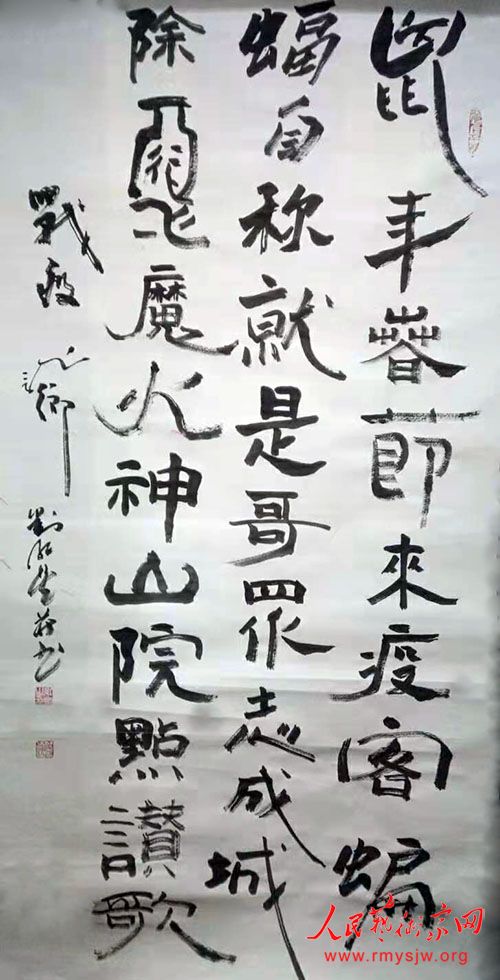 鼠年春節來疫客蝙
蝠自称就是哥眾志成城
除惡魔火神山院點讚歌
戰疫
劉 書
人民艺术家网
www.rmysjw.org